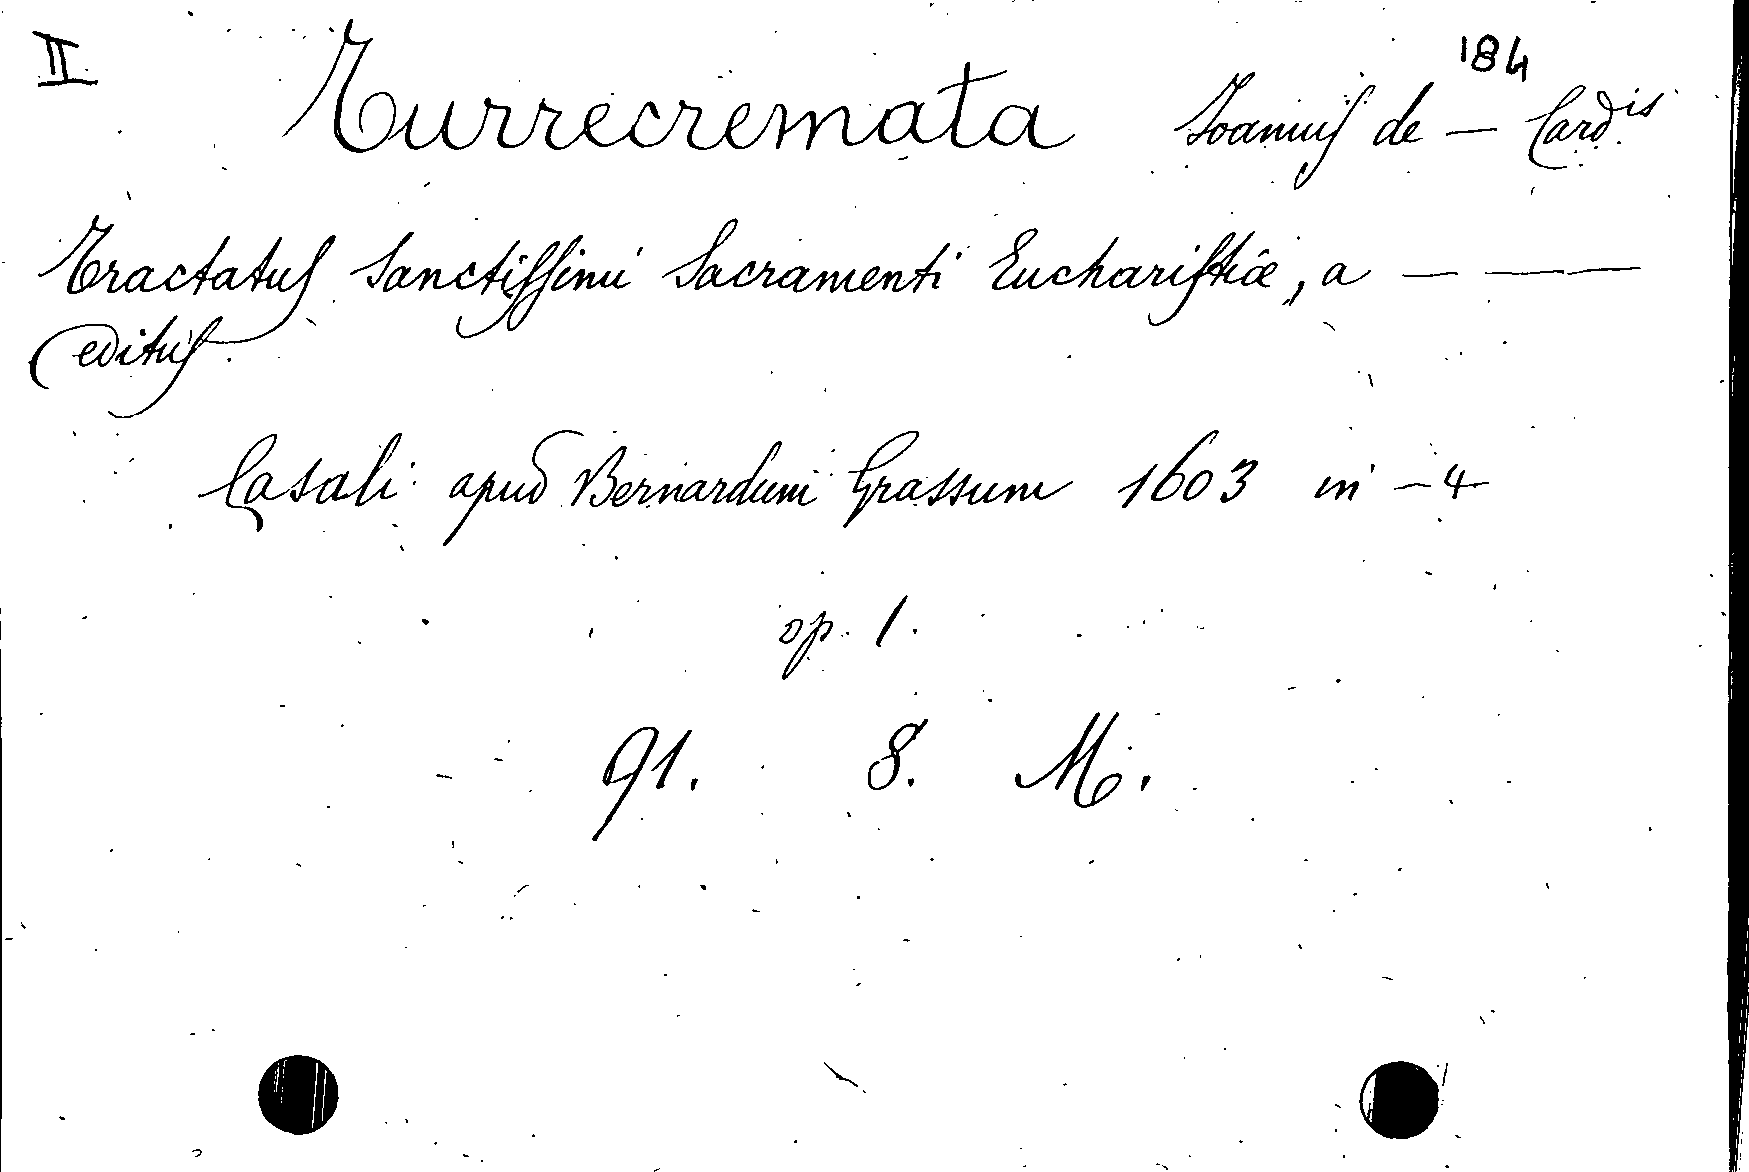 II
184
Turrecremata Joannis de — Card.is
Tractatus Sanctissimi Sacramenti Eucharistiæ, a — ——
editus.
Casali apud Bernardum Grassum 1603 in -4
op. 1.
91. 8. M.